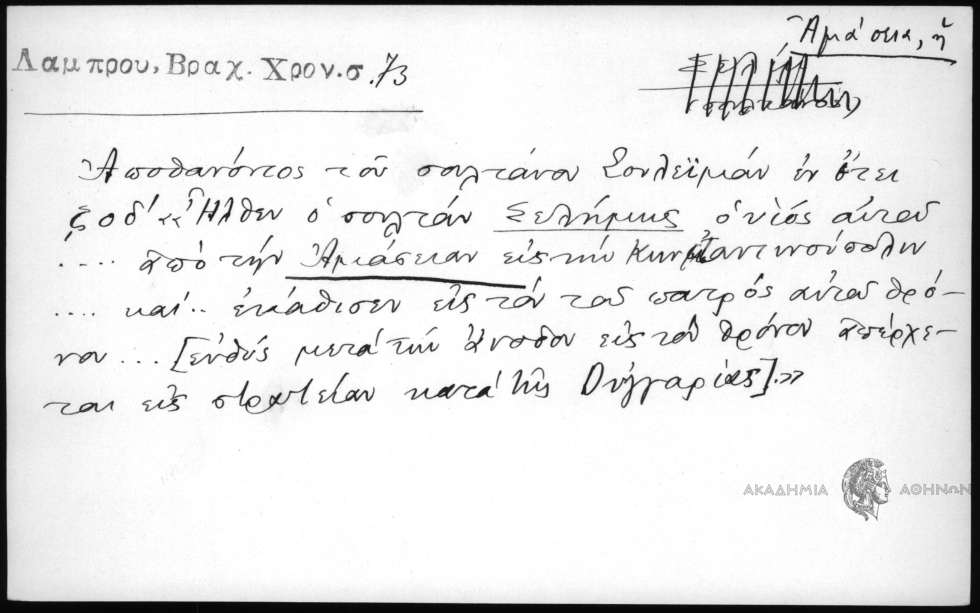 Ἀμάσεια, ἡ
Λαμπρου, Βραχ. Χρον. σ. 73
Ἀποθανόντος τοῦ σουλτάνου Σουλεϊμὰν ἐν ἔτει
ζοδ' «Ἦλθεν ὁ σουλτάν Σελήμης ὁ υἱός αὐτοῦ
.... ἀπό τήν Ἀμάσειαν εἰς τήν Κωνσταντινούπολιν
.... καί .. ἐκάθισεν εἰς τόν τοῦ πατρός αὐτοῦ θρό-
νον ... [εὐθύς μετά τήν ἄνοδον εἰς τόν θρόνον ἀπέρχε-
ται εἰς στρατείαν κατά τῆς Οὑγγαρίας].»
ΑΚΑΔΗΜΙΑ ΑΘΗΝΩΝ